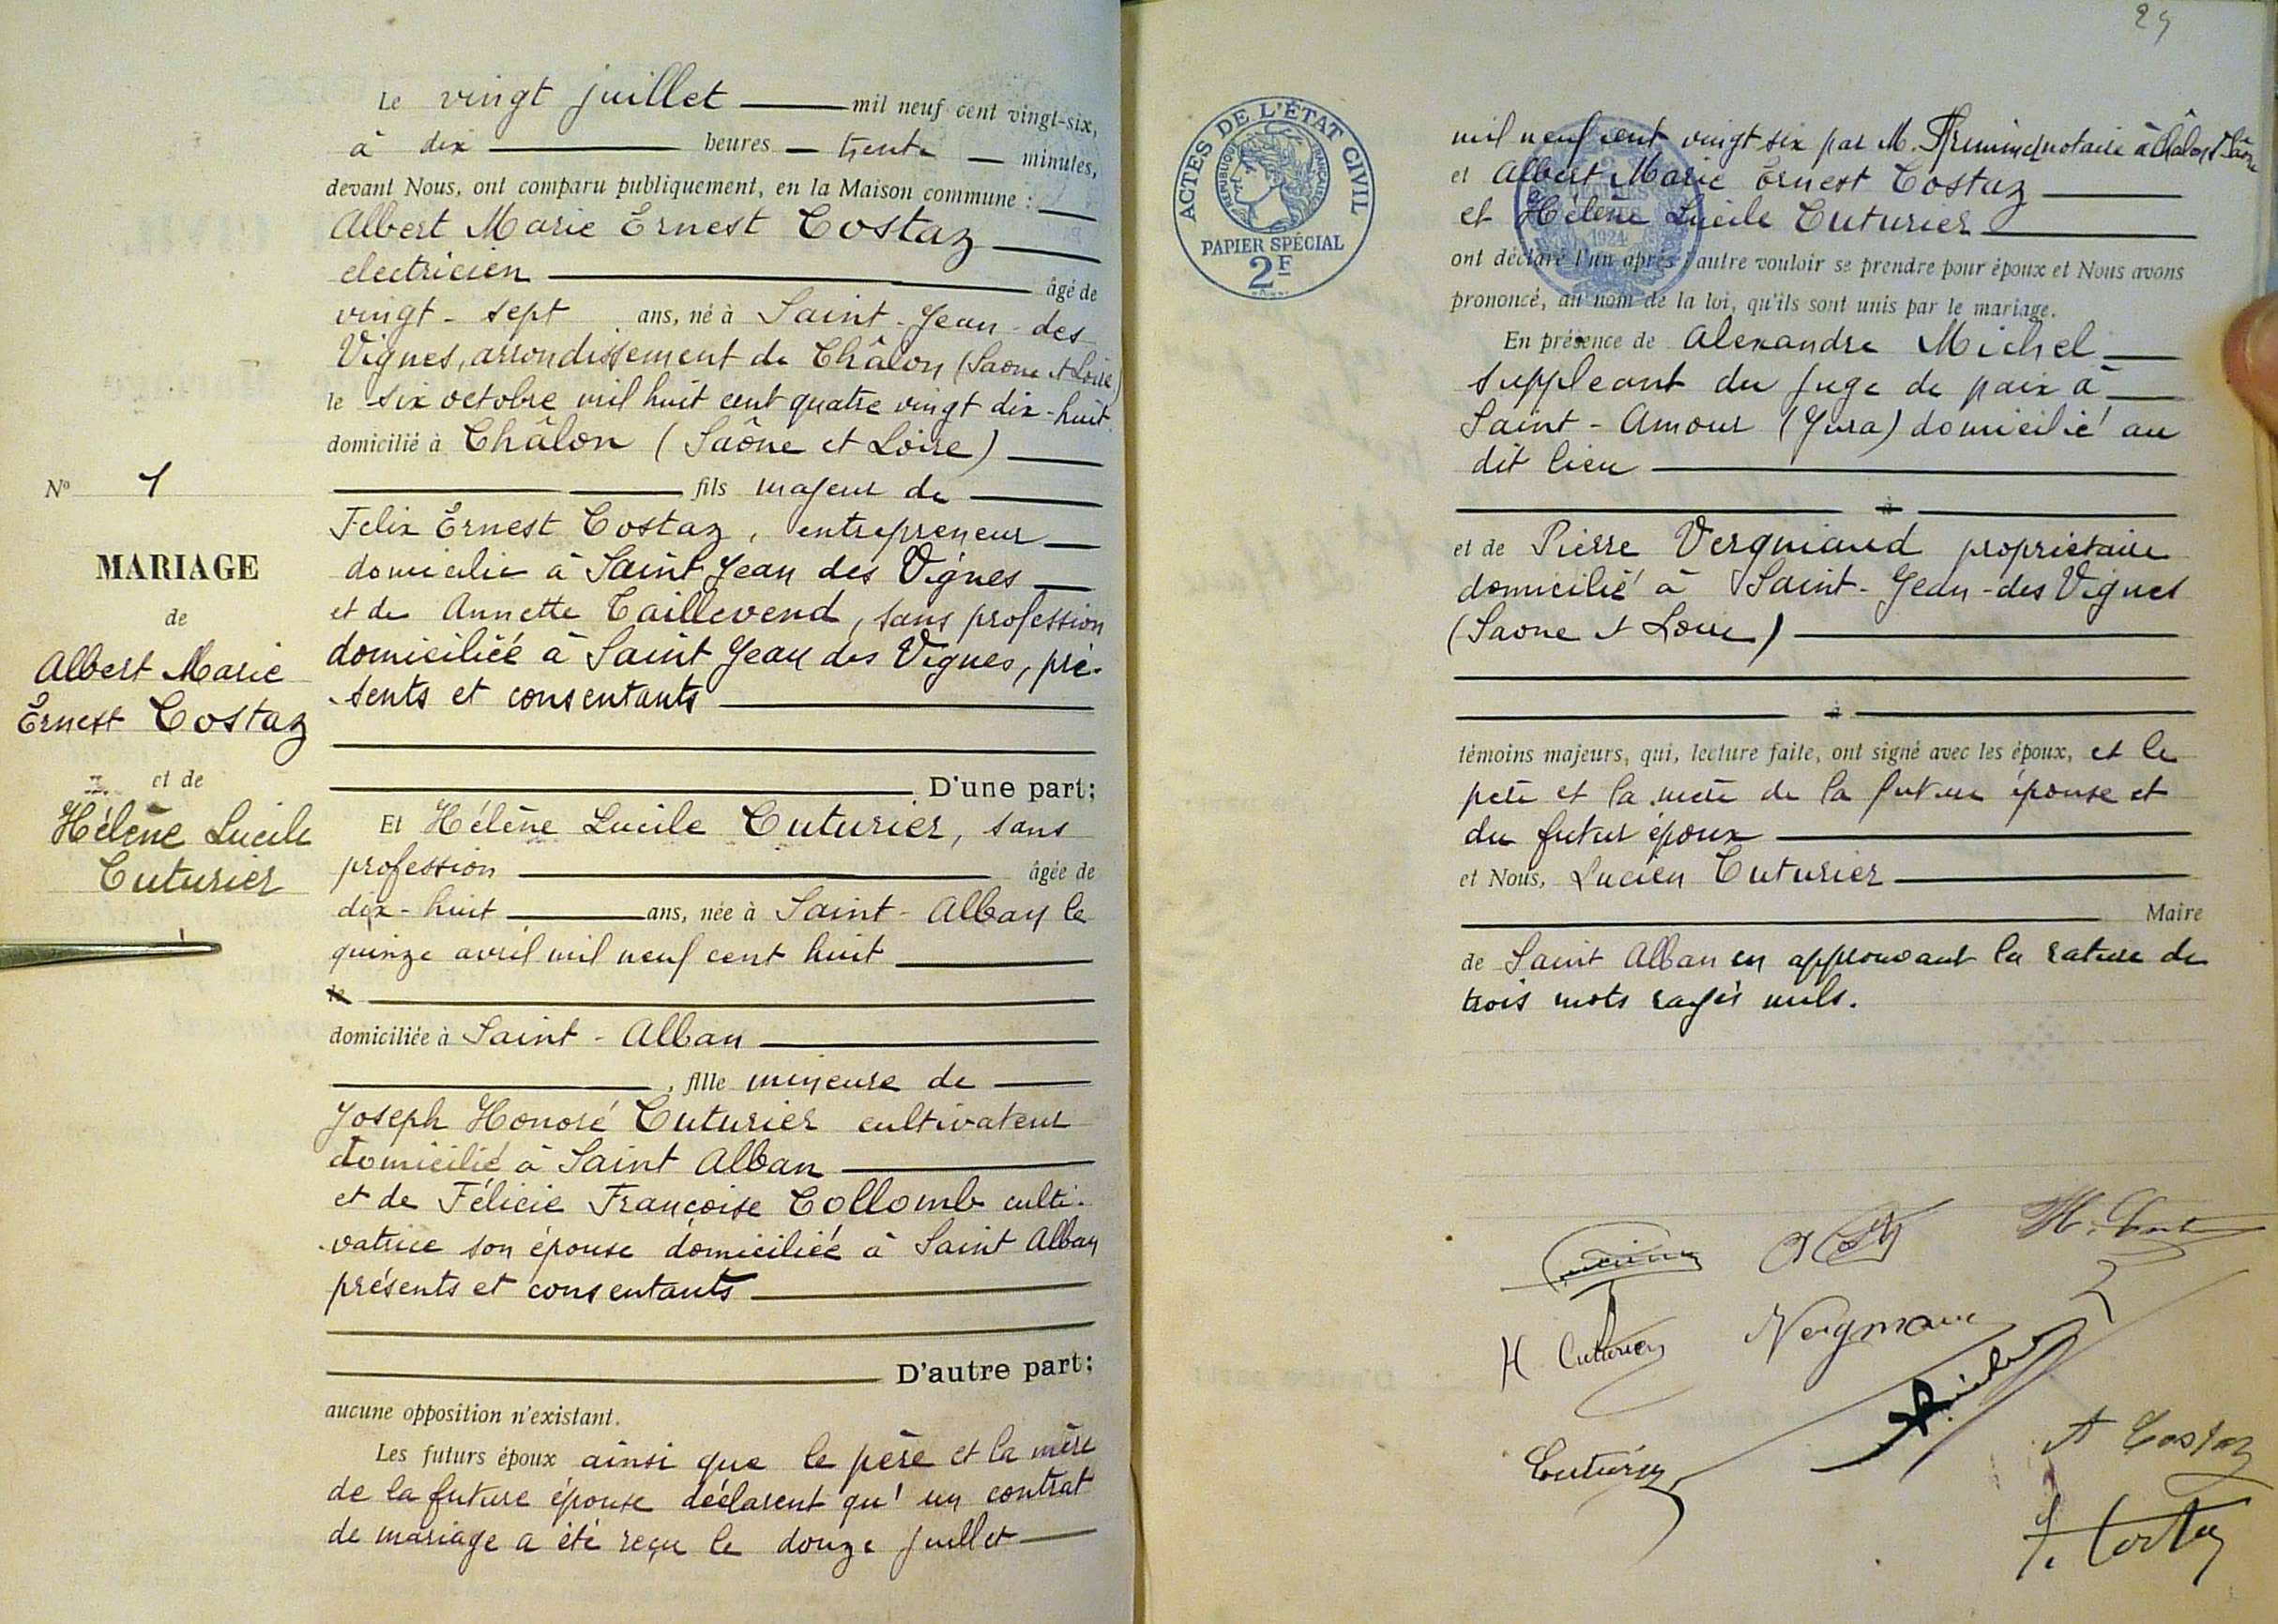 Le vingt juillet mil neuf cent vingt-six,
à dix heures trente minutes,
devant Nous, ont comparu publiquement, en la Maison commune :
Albert Marie Ernest Costaz
electricien âgé de
vingt - sept ans, né à Saint - Jean - des
Vignes, arrondissement de Châlon (Saone et Loire)
le six octobre mil huit cent quatre vingt dix-huit
domicilié à Châlon (Saône et Loire)
fils majeur de
Felix Ernest Costaz, entrepreneur
domicilié à Saint Jean des Vignes
et de Annette Taillevend, sans profession
domiciliée à Saint Jean des Vignes, pré-
sents et consentants
D'une part;
Et Hélène Lucile Cuturier, sans
profession âgée de
dix-huit ans, née à Saint-Alban le
quinze avril mil neuf cent huit
le
domiciliée à Saint - Alban
, fille mineure de
Joseph Honoré Cuturier cultivateur
domicilié à Saint Alban
et de Félicie Françoise Collomb culti-
vatrice son épouse domiciliée à Saint Alban
présents et consentants
D'autre part;
aucune opposition n'existant.
Les futurs époux ainsi que le père et la mère
de la future épouse déclarent qu'un contrat
de mariage a été reçu le douze juillet
No 1
MARIAGE
de
Albert Marie
Ernest Costaz
et de
Hélène Lucile
Cuturier
ACTES DE L'ÉTAT CIVIL
RÉPUBLIQUE FRANÇAISE
PAPIER SPÉCIAL
2F
1924
mil neuf cent vingt six par M. notaire à Châlon s/ Saône
et Albert Marie Ernest Costaz
et Hélène Lucile Cuturier
ont déclaré l'un après l'autre vouloir se prendre pour époux et Nous avons
prononcé, au nom de la loi, qu'ils sont unis par le mariage.
En présence de Alexandre Michel
suppleant du juge de paix à
Saint-Amour (Jura) domicilié au
dit lieu
à
et de Pierre Vergniaud propriétaire
domicilié à Saint-Jean-des Vignes
(Saone et Loire)
à
témoins majeurs, qui, lecture faite, ont signé avec les époux, et le
père et la mère de la future épouse et
du futur époux
et Nous, Lucien Cuturier
Maire
de Saint Alban en approuvant la rature de
trois mots rayés nuls.
H Cuturier
Cuturier
A Costaz